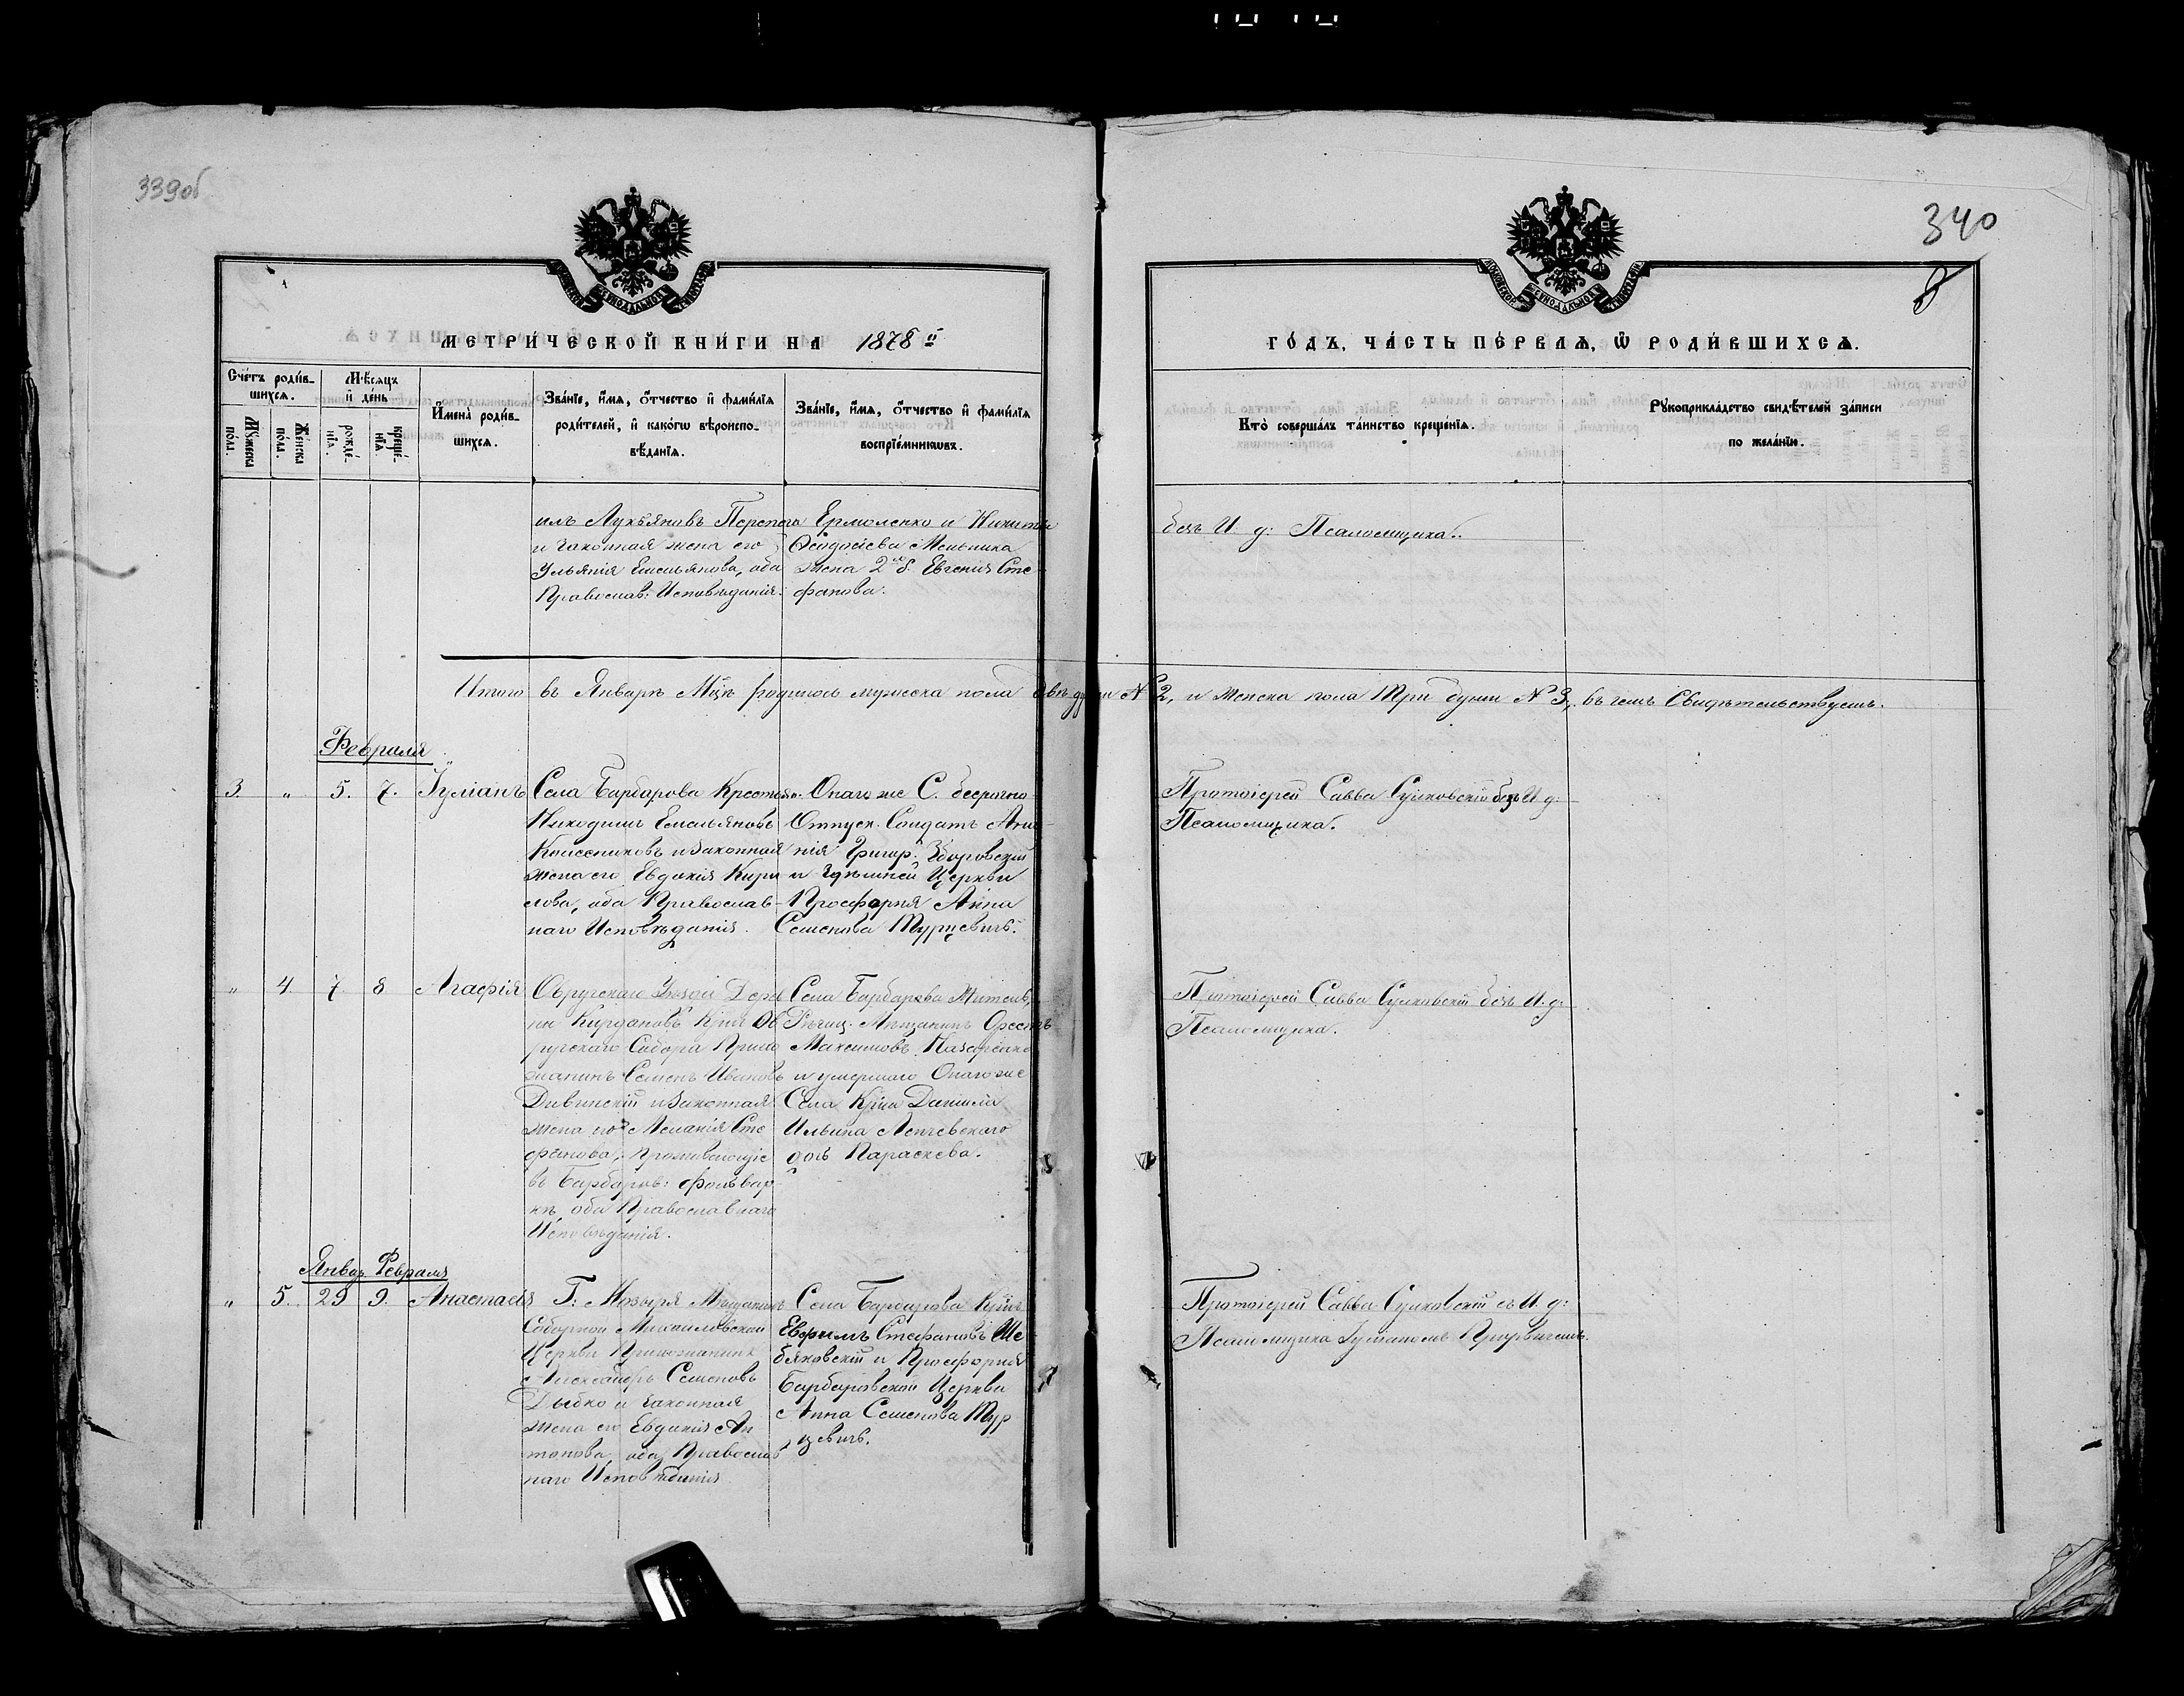 339об
340
8
МЕТРИ́ЧЕСКОЙ КНИ́ГИ НА 1878й
ГО́ДЪ, ЧА́СТЬ ПЕ́РВАЯ, Ѡ҆ РОДИ́ВШИХСѦ.
Сче́тъ роди́в-
шихся.
Мꙋ́жеска по́ла.
Же́нска по́ла.
Мѣ́сяцъ
и҆ де́нь
рожде́-
нїѧ.
креще́-
нїѧ
И҆мена̀ роди́в-
шихсѧ.
Зва́нїе, и҆́мѧ, ѻ҆́тчество и҆ фами́лїѧ
роди́телей, и҆ како́гѡ вѣроиспо-
вѣ́данїѧ.
Зва́нїе, и҆́мѧ, ѻ҆́тчество и҆ фами́лїѧ
воспрїе́мникѡвъ.
Кто̀ соверша́лъ та́инство креще́нїѧ.
Рꙋкоприкла́дство свидѣ́телей за́писи
по жела́нїю.
илъ Лукьяновъ Перепеча
и законная жена его
Ульянія Емельянова, оба
Православ: Исповѣданія.
Ермоленко и Никиты
Ѳеодосіева Мельника
жена 2го б. Евгенія Сте-
фанова.
безъ И. д: Псаломщика.
Итого въ Январѣ Мцѣ родилось мужеска пола двѣ души № 2, и женска пола три души № 3, въ чемъ Свидѣтельствуемъ.
Февраля
3. " 5. 7. Іуліанъ
Села Барбарова Крестьян.
Никодимъ Емельяновъ
Колесниковъ и законная
жена его Евдокія Кири-
лова, оба Православ-
наго Исповѣданія.
Онаго же С. безсрочно
Отпуск. Солдатъ Ана-
нія Григор. Зборовскій
и здѣшней Церкви
Просфорня Анна
Семенова Турцевичъ.
Протоіерей Савва Сулковскій безъ И. д:
Псаломщика.
" 4. 7. 8 Агафія
Овручскаго Уѣзда Дерев
ни Кирдановъ Крнъ Ов
ручскаго Собора Прихо
жанинъ Семенъ Ивановъ
Дивинскій и законная
жена его Меланія Сте
фанова, проживающіе
въ Барбаров: фольвар
кѣ, оба Православнаго
Исповѣданія.
Села Барбарова Житель,
Рѣчиц. Мѣщанинъ Орестъ
Максимовъ Назаренко
и умершаго Онаго же
Села Крна Даніила
Ильина Лепчевскаго
дочь Параскева.
Протоіерей Савва Сулковскій безъ И. д:
Псаломщика.
Январ. Февраля
" 5. 29 9. Анастасія
Г: Мозыря Мѣщанинъ
Соборной Михайловской
Церкви Прихожанинъ
Александръ Семеновъ
Дыбко и законная
жена его Евдокія Ан
тонова, оба Православ
наго Исповѣданія
Села Барбарова Крнъ
Евфимъ Стефановъ Ше
бяковскій и Просфорня
Барбаровской Церкви
Анна Семенова Тур
цевичъ.
Протоіерей Савва Сулковскій съ И. д:
Псаломщика Іуліаномъ